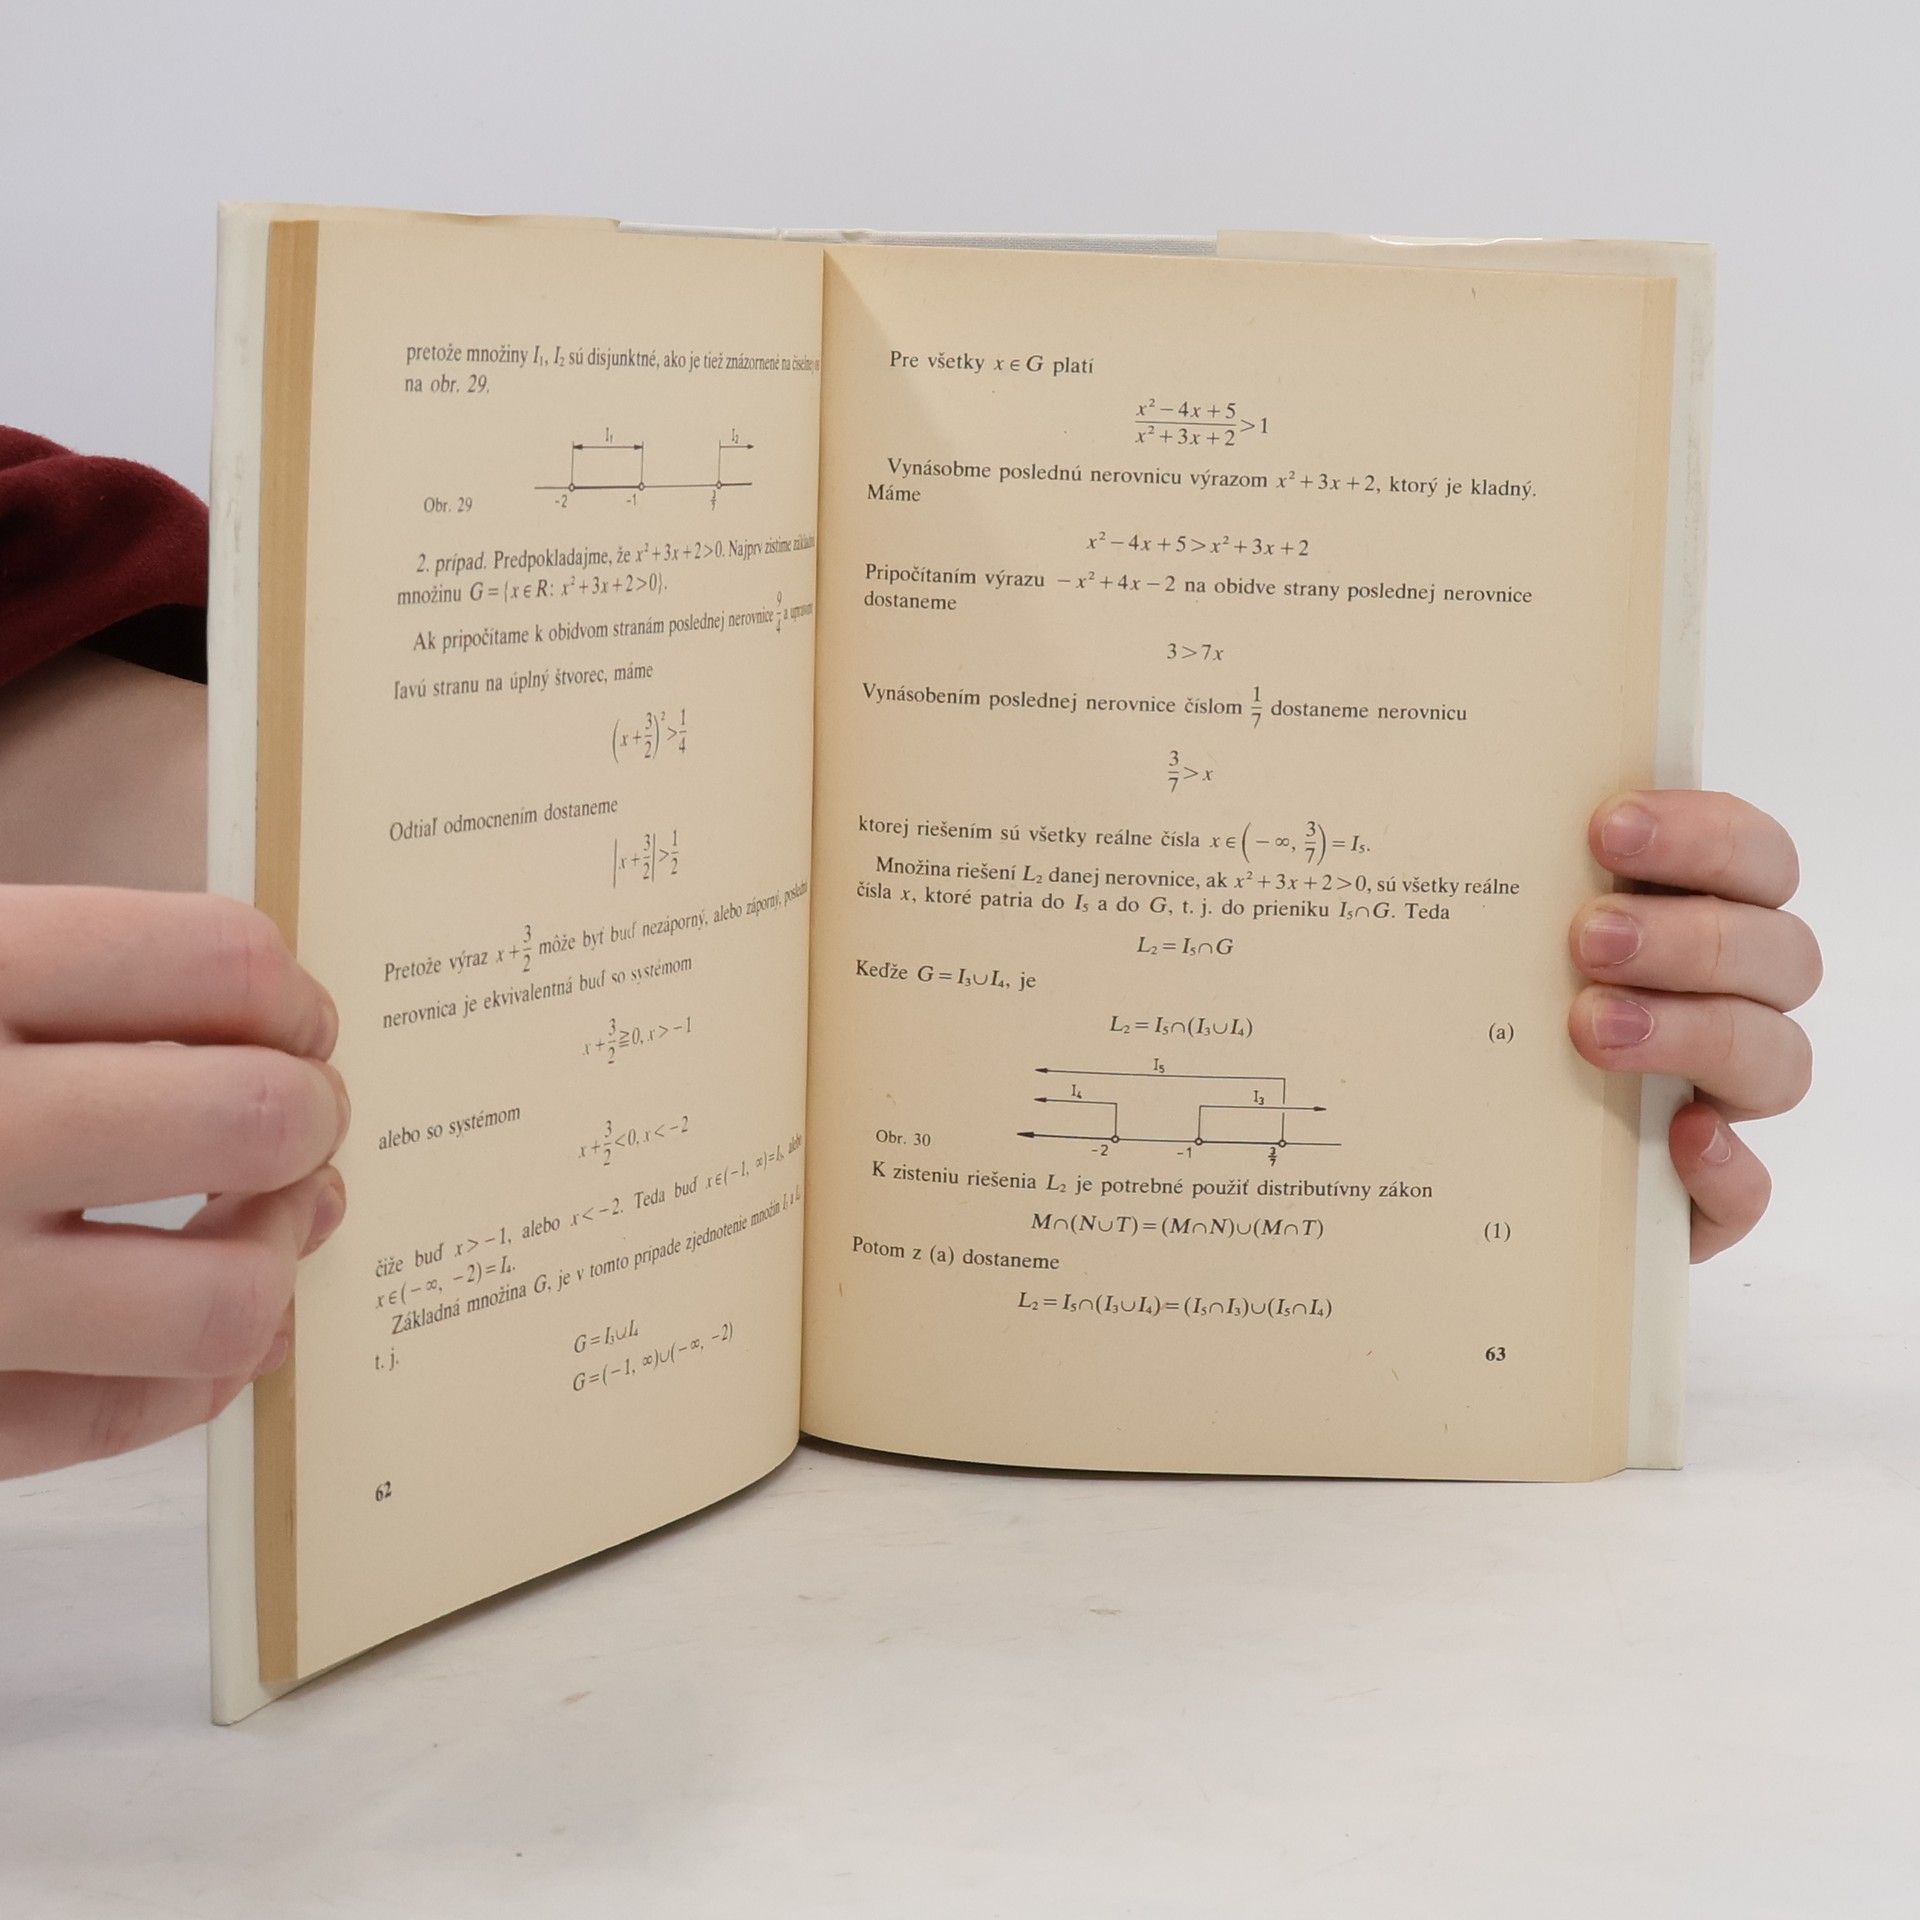 pretože množiny I₁, I₂ sú disjunktné, ako je tiež znázornené na číselnej
na obr. 29.
I₁ I₂
-2 -1 3/7
Obr. 29
2. prípad. Predpokladajme, že x²+3x+2>0. Najprv zistíme
množinu G={x∈R: x²+3x+2>0}.
Ak pripočítame k obidvom stranám poslednej nerovnice 9/4 a
ľavú stranu na úplný štvorec, máme
(x+3/2)²>1/4
Odtiaľ odmocnením dostaneme
|x+3/2|>1/2
Pretože výraz x+3/2 môže byť buď nezáporný, alebo záporný,
nerovnica je ekvivalentná buď so systémom
x+3/2≧0, x>−1
alebo so systémom
x+3/2<0, x<−2
čiže buď x>−1, alebo x<−2. Teda buď x∈(−1, ∞)=I₃, alebo
x∈(−∞, −2)=I₄.
Základná množina G, je v tomto prípade zjednotenie množín I₃ a I₄
t. j.
G=I₃∪I₄
G=(−1, ∞)∪(−∞, −2)
62
Pre všetky x∈G platí
(x²−4x+5)/(x²+3x+2)>1
Vynásobme poslednú nerovnicu výrazom x²+3x+2, ktorý je kladný.
Máme
x²−4x+5>x²+3x+2
Pripočítaním výrazu −x²+4x−2 na obidve strany poslednej nerovnice
dostaneme
3>7x
Vynásobením poslednej nerovnice číslom 1/7 dostaneme nerovnicu
3/7>x
ktorej riešením sú všetky reálne čísla x∈(−∞, 3/7)=I₅.
Množina riešení L₂ danej nerovnice, ak x²+3x+2>0, sú všetky reálne
čísla x, ktoré patria do I₅ a do G, t. j. do prieniku I₅∩G. Teda
L₂=I₅∩G
Keďže G=I₃∪I₄, je
L₂=I₅∩(I₃∪I₄) (a)
I₅
I₄ I₃
Obr. 30
-2 -1 3/7
K zisteniu riešenia L₂ je potrebné použiť distributívny zákon
M∩(N∪T)=(M∩N)∪(M∩T) (1)
Potom z (a) dostaneme
L₂=I₅∩(I₃∪I₄)=(I₅∩I₃)∪(I₅∩I₄)
63